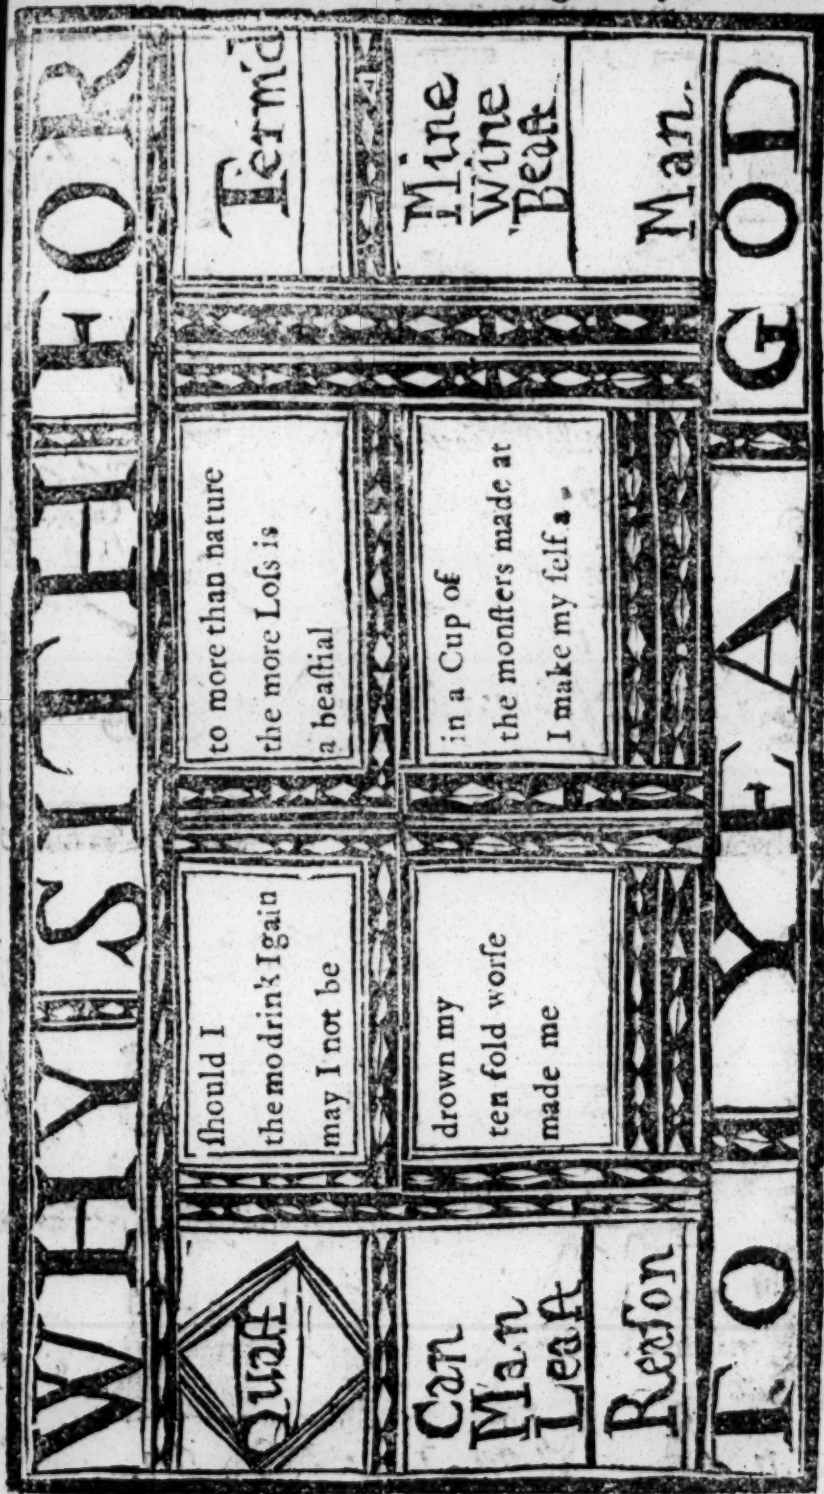 WHY SITH FOR
Quaff
ſhould I
the mo drink I gain
may I not be
to more than nature
the more Loſs is
a beaſtial
Term'd
Can
Man
Leaſt
Reaſon
drown my
ten fold worſe
made me
in a Cup of
the monſters made at
I make my ſelf a
Mine
Wine
Beaſt
Man.
TO YEA GOD